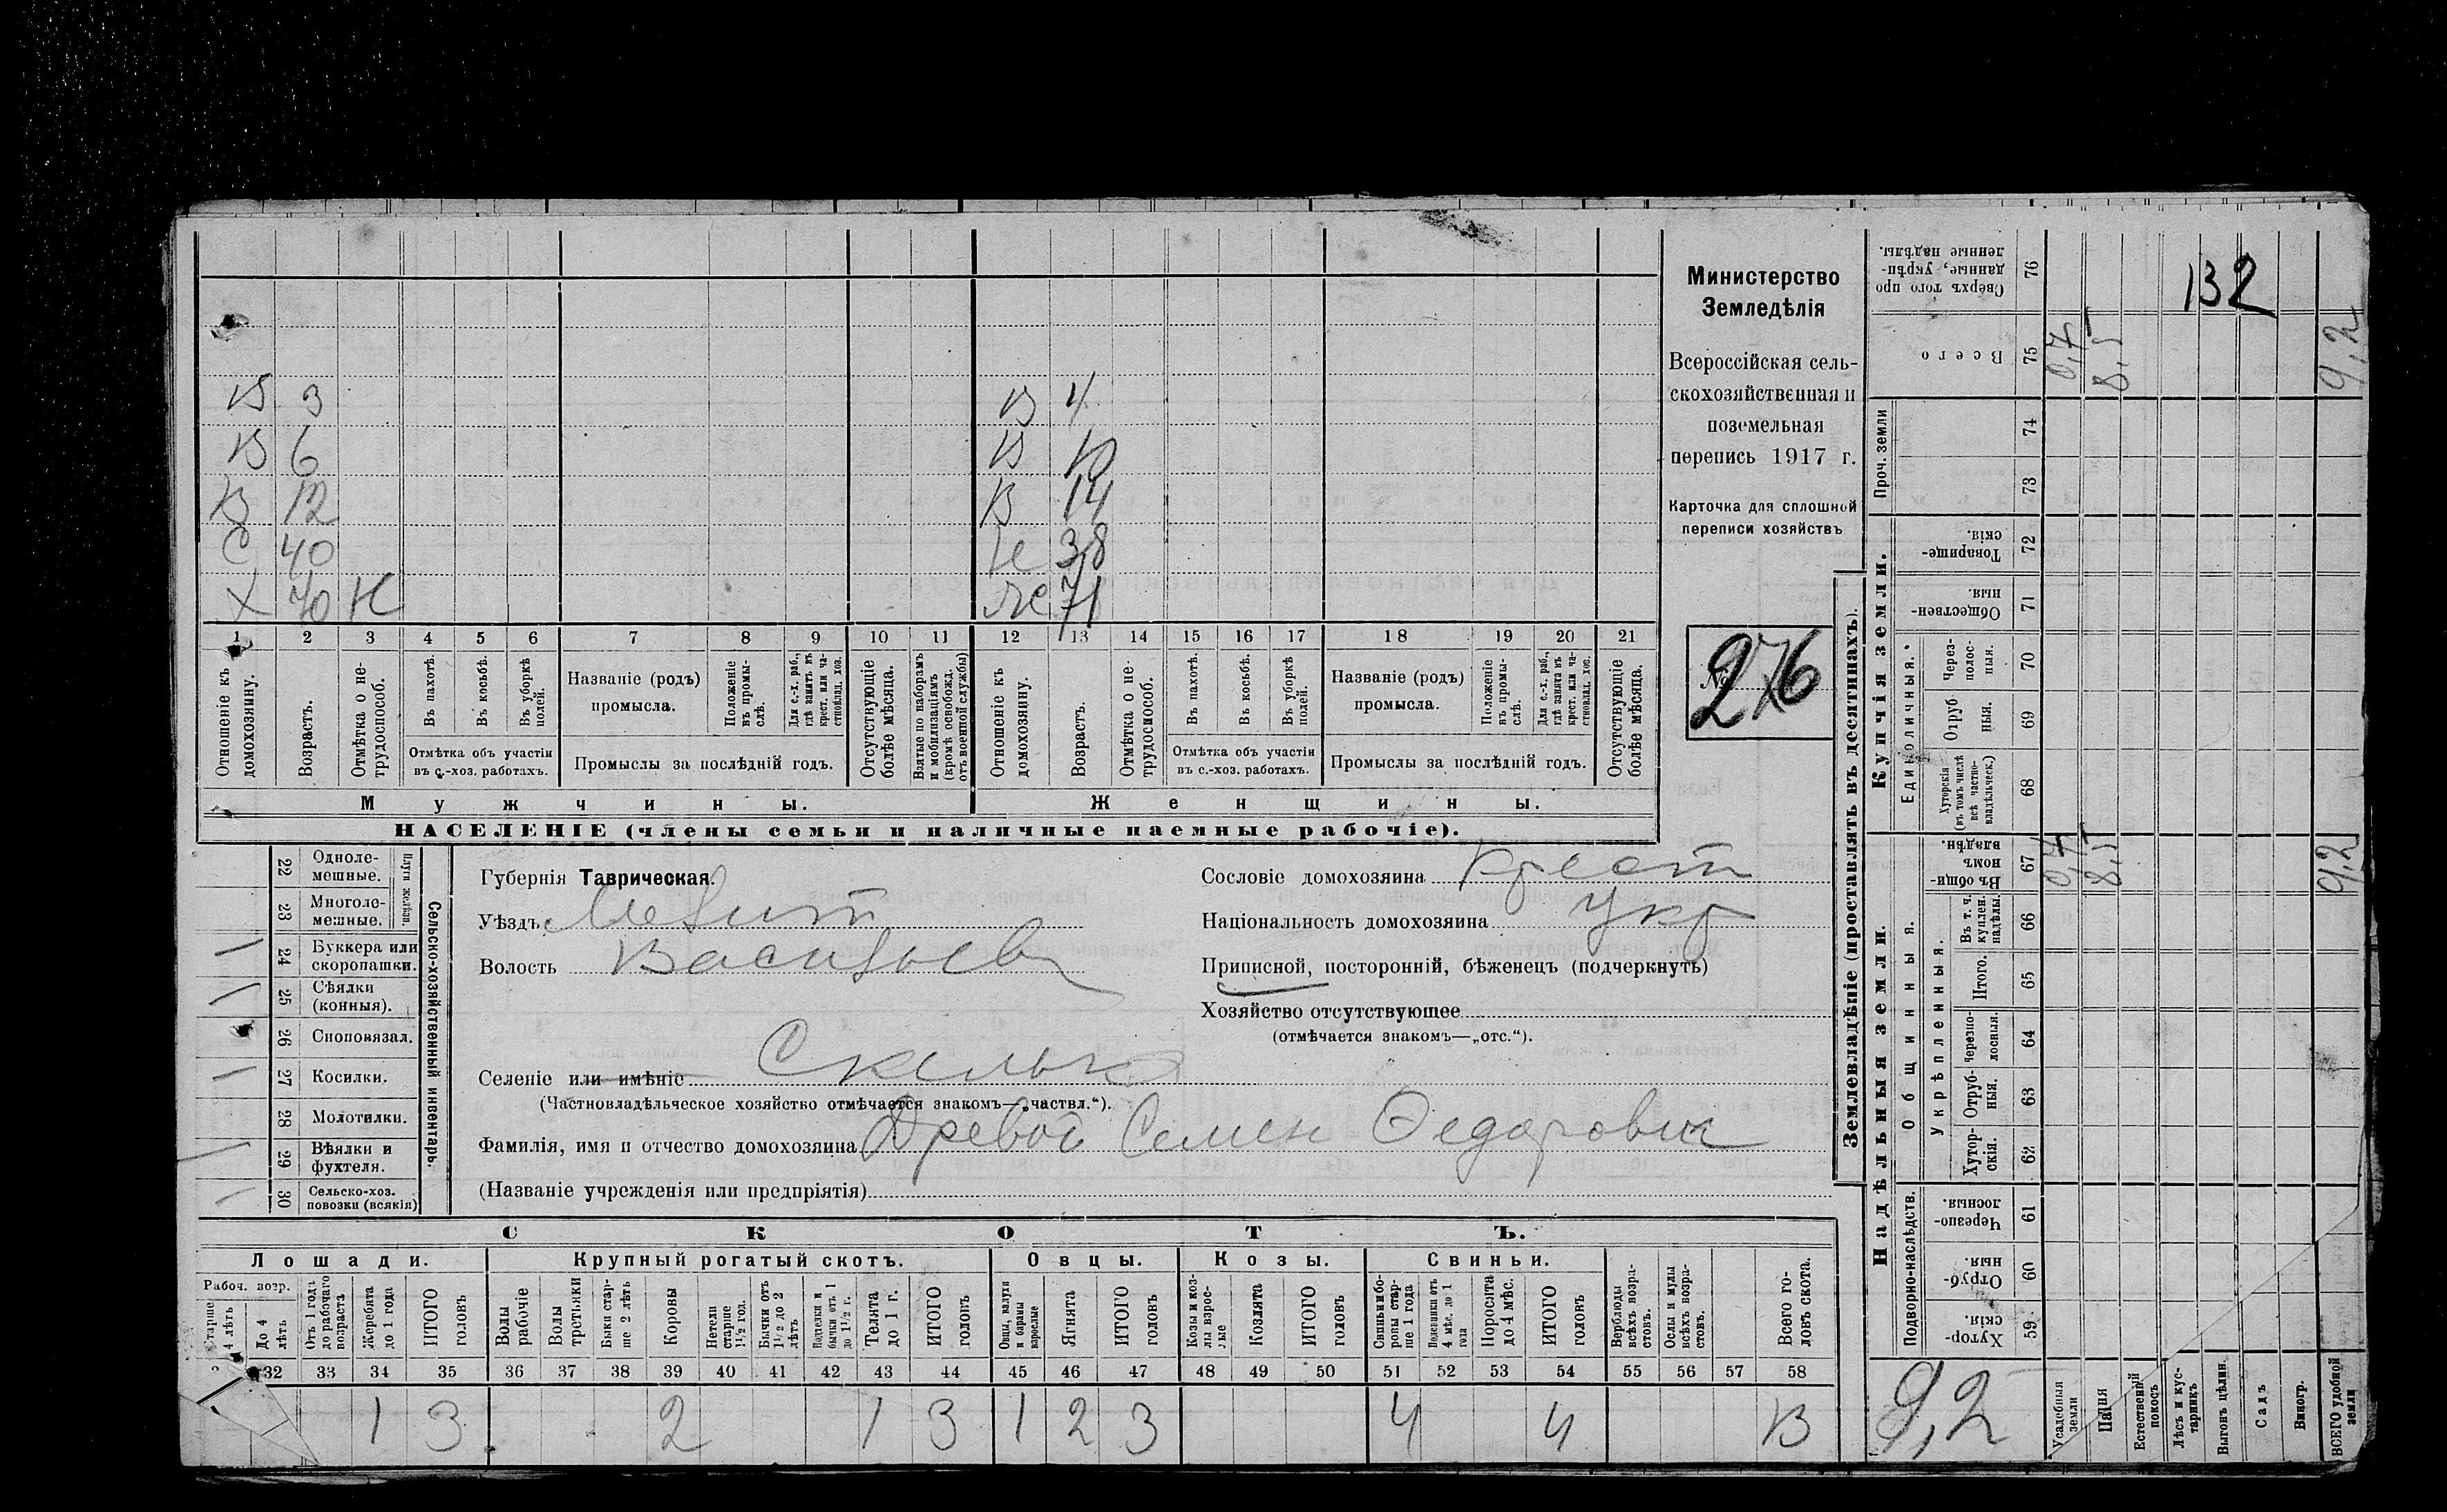 Министерство
Земледѣлія
Всероссійская сель-
скохозяйственная и
поземельная
перепись 1917 г.
Карточка для сплошной
переписи хозяйствъ
№ 276
132
В 3
В 6
В 12
С 40
Х 70 Н
В 4
В 10
В 14
Н 38
Ж 71
1 2 3 4 5 6 7 8 9 10 11 12 13 14 15 16 17 18 19 20 21
Отношеніе къ домохозяину.
Возрастъ.
Отмѣтка о не-трудоспособ.
Въ пахотѣ.
Въ косьбѣ.
Въ уборкѣ полей.
Отмѣтка объ участіи
въ с.-хоз. работахъ.
Названіе (родъ)
промысла.
Положеніе въ промы-слѣ.
Для с.-х. раб., гдѣ занятъ въ крест. или ча-стновлад. хоз.
Промыслы за послѣдній годъ.
Отсутствующіе болѣе мѣсяца.
Взятые по наборамъ и мобилизаціямъ (кромѣ освобожд. отъ военной службы)
Отношеніе къ домохозяину.
Возрастъ.
Отмѣтка о не-трудоспособ.
Въ пахотѣ.
Въ косьбѣ.
Въ уборкѣ полей.
Отмѣтка объ участіи
въ с.-хоз. работахъ.
Названіе (родъ)
промысла.
Положеніе въ промы-слѣ.
Для с.-х. раб., гдѣ занята въ крест. или ча-стновлад. хоз.
Промыслы за послѣдній годъ.
Отсутствующіе болѣе мѣсяца.
Мужчины.
Женщины.
НАСЕЛЕНІЕ (члены семьи и наличные наемные рабочіе).
22 Одноле-мешные.
23 Многоле-мешные.
Плуги желѣзн.
24 Буккера или скоропашки.
25 Сѣялки (конныя).
26 Сноповязал.
27 Косилки.
28 Молотилки.
29 Вѣялки и фухтеля.
30 Сельско-хоз. повозки (всякія)
Сельско-хозяйственный инвентарь.
Губернія Таврическая.
Уѣздъ Мелит
Волость Васильев
Селеніе или имѣніе Скельк
(Частновладѣльческое хозяйство отмѣчается знакомъ—„частвл.“).
Фамилія, имя и отчество домохозяина Древой Семен Федорович
(Названіе учрежденія или предпріятія)
Сословіе домохозяина Крест
Національность домохозяина Укр
Приписной, посторонній, бѣженецъ (подчеркнуть)
Хозяйство отсутствующее
(отмѣчается знакомъ—„отс.“).
СКОТЪ.
Лошади.
Крупный рогатый скотъ.
Овцы.
Козы.
Свиньи.
Рабоч. возр.
Старше 4 лѣтъ
До 4 лѣтъ
Отъ 1 года до рабочаго возраста
Жеребята до 1 года
ИТОГО головъ
Волы рабочіе
Волы третьяки
Быки стар-ше 2 лѣтъ
Коровы
Нетели старше 1½ год.
Бычки отъ 1½ до 2 лѣтъ
Подтелки и бычки отъ 1 до 1½ г.
Телята до 1 г.
ИТОГО головъ
Овцы, валухи и бараны взрослые
Ягнята
ИТОГО головъ
Козы и коз-лы взрос-лые
Козлята
ИТОГО головъ
Свиньи и бо-ровы стар-ше 1 года
Подсвинки отъ 4 мѣс. до 1 года
Поросята до 4 мѣс.
ИТОГО головъ
Верблюды всѣхъ возра-стовъ.
Ослы и мулы всѣхъ возра-стовъ.
Всего го-ловъ скота.
32 33 34 35 36 37 38 39 40 41 42 43 44 45 46 47 48 49 50 51 52 53 54 55 56 57 58
1 3 2 1 3 1 2 3 4 4 13
Землевладѣніе (проставлять въ десятинахъ).
Надѣльныя земли.
Купчія земли.
Проч. земли
Подворно-наслѣдств.
Общинныя.
Укрѣпленныя.
Единоличныя.
Сверхъ того про данные, укрѣп-ленные надѣлы. 76
Всего 75
74
73
Товарище-скія. 72
Обществен-ныя. 71
Через-полос-ныя. 70
Отруб ныя. 69
Хуторскія (въ томъ числѣ всѣ частно-владѣльческ.) 68
Въ общи-номъ владѣн. 67
Въ т. ч. куплен. надѣлы. 66
Итого. 65
Черезпо-лосныя. 64
Отруб-ныя. 63
Хутор-скія. 62
Черезпо-лосныя. 61
Отруб-ныя. 60
Хутор-скія. 59
0,7 8,5 9,2
0,7 8,5 9,2
9,2
Усадебныя земли
Пашня
Естественный покосъ
Лѣсъ и кус-тарникъ
Выгонъ цѣлин.
Садъ
Виногр.
ВСЕГО удобной земли